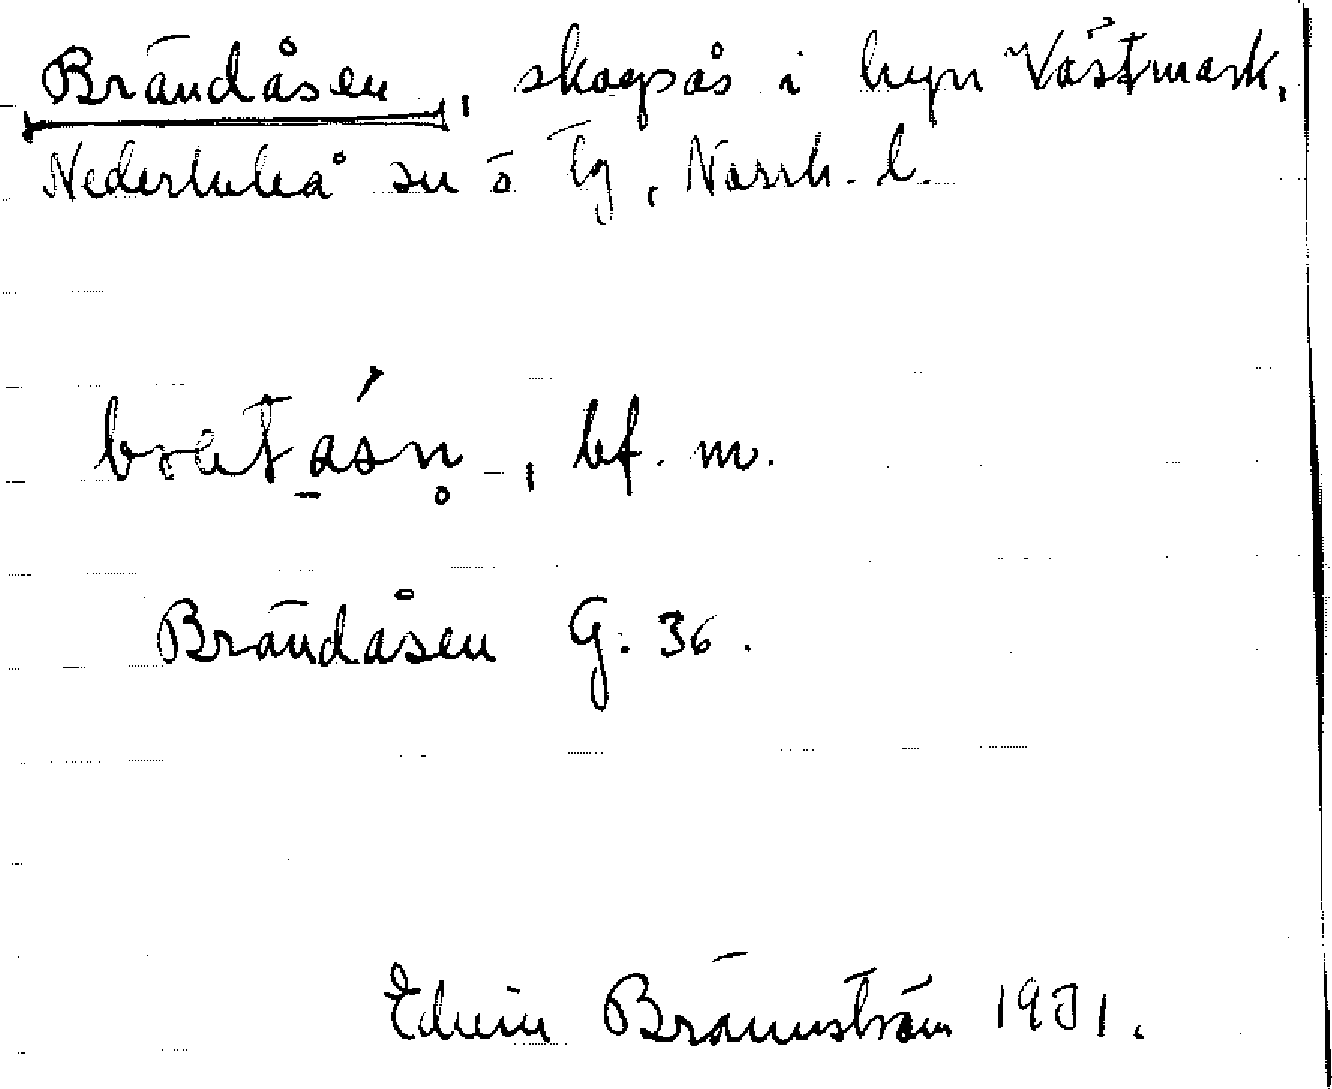 Brändåsen, skogsås i byn Västmark,
Nederluleå sn ö tg, Norrb. l.
bf. m.
Brändåsen G. 36.
Edvin Brännström 1931.